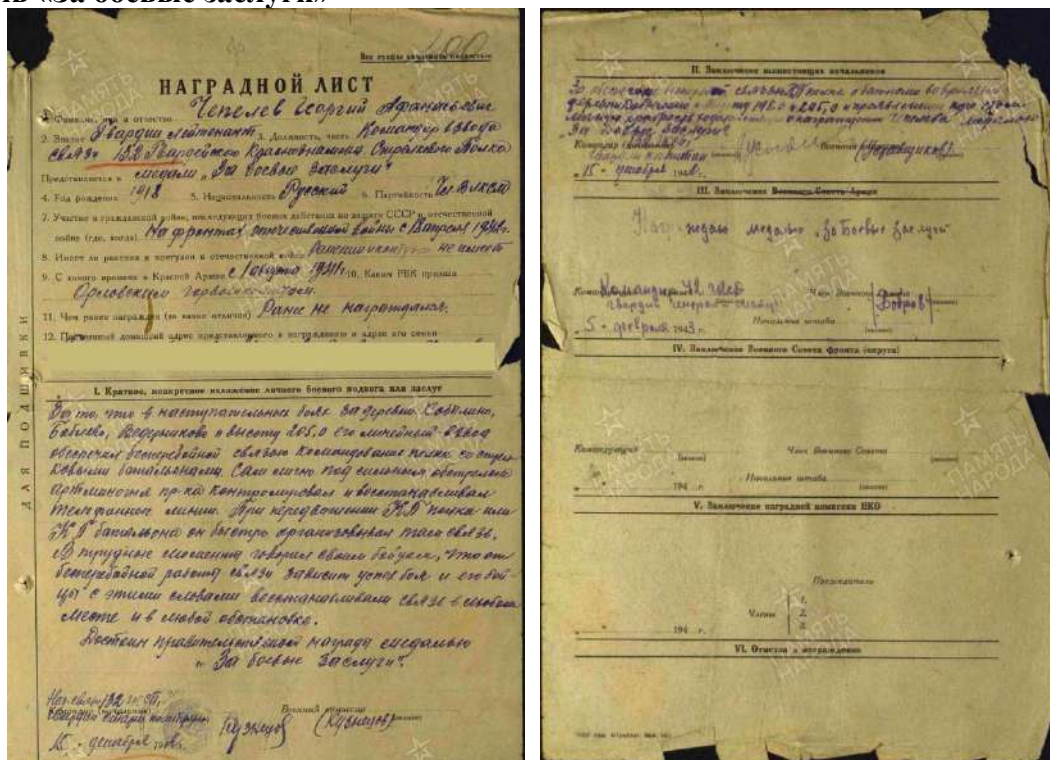 «За боевые заслуги»
400
Все графы заполнять полностью
НАГРАДНОЙ ЛИСТ
1. Фамилия, имя и отчество Чепелев Георгий Афанасьевич
2. Звание Гвардии лейтенант 3. Должность, часть Командир взвода
связи 132 Гвардейского Краснознаменного Стрелкового Полка
Представляется к медали „За боевые заслуги"
4. Год рождения 1918 5. Национальность Русский 6. Партийность Чл. ВЛКСМ
7. Участие в гражданской войне, последующих боевых действиях по защите СССР и отечественной
войне (где, когда) На фронтах отечественной войны с апреля 1942г.
8. Имеет ли ранения и контузии в отечественной войне Ранений и контузий не имеет
9. С какого времени в Красной Армии С 1 августа 10. Каким РВК призван
Орловским горвоенкоматом.
11. Чем ранее награжден (за какие отличия) Ранее не награждался.
12. Постоянный домашний адрес представляемого к награждению и адрес его семьи
ДЛЯ ПОДШИВКИ
I. Краткое, конкретное изложение личного боевого подвига или заслуг
За то, что в наступательных боях за деревни Кобылино,
Ведерниково и высоту 205,0 его линейный взвод
обеспечил бесперебойной связью командование полка со стрел-
ковыми батальонами. Сам лично под сильным обстрелом
артминогня пр-ка контролировал и восстанавливал
телефонные линии. При передвижении КП полка или
КП батальона он быстро организовывал там связь.
В трудные моменты говорил своим бойцам, что от
бесперебойной работы связи зависит успех боя и его бой-
цы с этими словами восстанавливали связь в любом
месте и в любой обстановке.
Достоин правительственной награды медалью
„За боевые заслуги".
Нач. связи 132
Гвардии
Военный комиссар
Кузнецов (Кузнецов)
15 - декабря
II. Заключение вышестоящих начальников
За обеспечение связью
деревни и высоту 198,0 и 205,0 и проявленную при этом
награждения Чепелева медалью
За боевые заслуги
Командир Военный
Гвардии капитан
15 - декабря 194 г.
III. Заключение Военного Совета Армии
Награждаю медалью „за Боевые заслуги"
Командир
гвардии генерал-майор
Член Военного Совета
Бобров
5 - февраля 1943 г. Начальник штаба
IV. Заключение Военного Совета фронта (округа)
Командующий Член Военного Совета
Начальник штаба
194 г.
V. Заключение наградной комиссии НКО
Председатель
1.
Члены 2.
3.
194 г.
VI. Отметка о награждении
ПАМЯТЬ НАРОДА